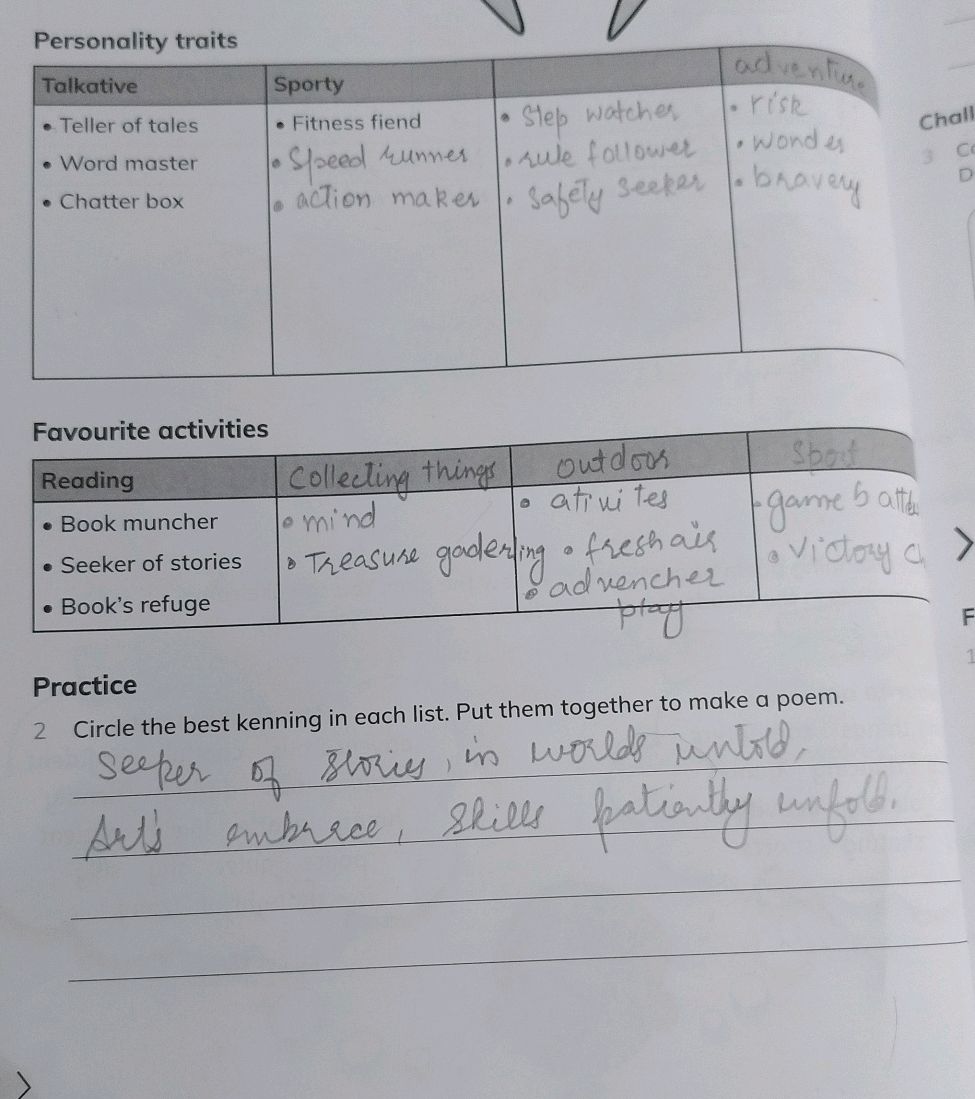 Personality traits
Talkative Sporty adventur
• Teller of tales • Fitness fiend • Step watcher • risk
• Word master • Speed runner • rule follower • wonder
• Chatter box • action maker • safety seeker • bravery
Chall
3
D
Favourite activities
Reading Collecting things outdoor Sport
• Book muncher • mind • ativites • game battle
• Seeker of stories • Treasure gadering • fresh air • victory c
• Book's refuge • advencher
play
F
1
Practice
2 Circle the best kenning in each list. Put them together to make a poem.
Seeker of stories, in worlds untold,
Art's embrace, skills patiently unfold.